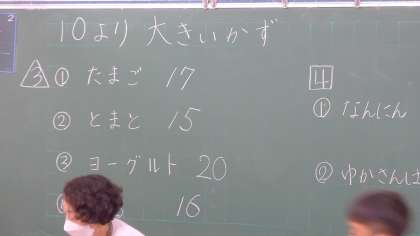 2
10より大きいかず
3 ① たまご 17
② とまと 15
③ ヨーグルト 20
16
4
① なんにん
② ゆかさんは